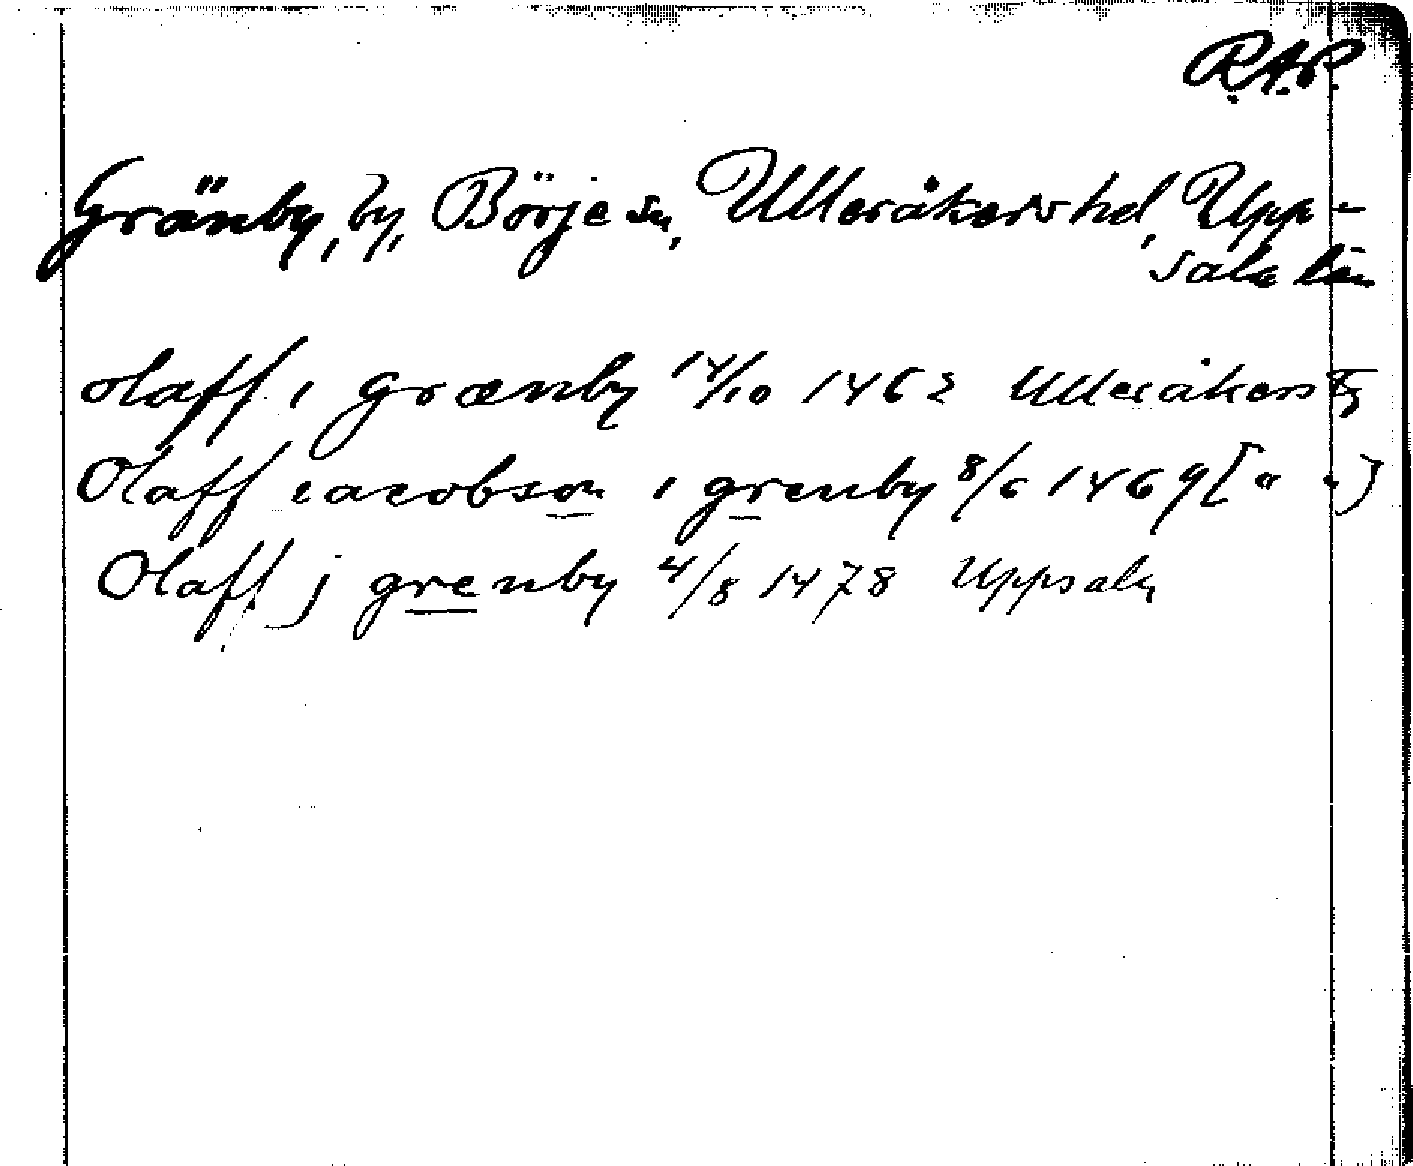 R.A.P.
Gränby, by, Börje sn, Ulleråkers hd, Upp-
sala län
olaff i grænby 14/10 1462 Ulleråkers tg
Olaff iacobson i grenby 8/6 1469 [" "]
Olaff j grenby 4/8 1478 Uppsala